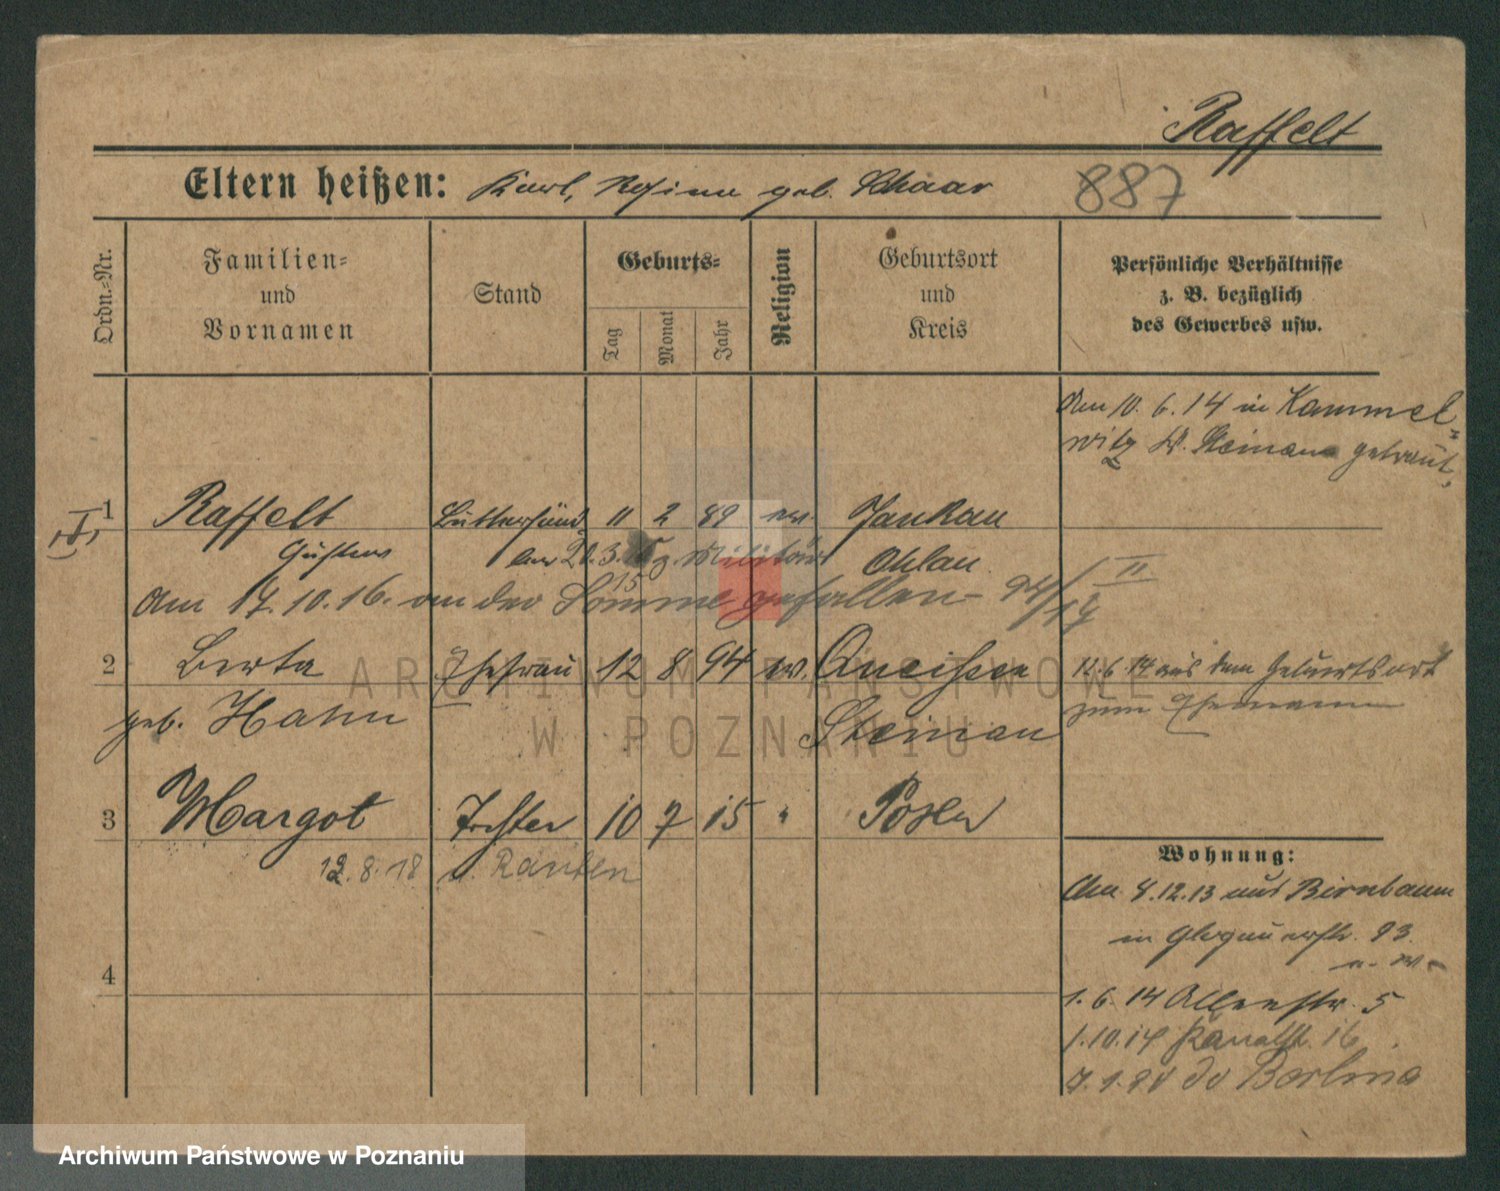 Raffelt
Eltern heißen: Karl, Rosina geb. Schaar
887
Ordn.-Nr.
Familien-
und
Vornamen
Stand
Geburts-
Tag
Monat
Jahr
Religion
Geburtsort
und
Kreis
Persönliche Verhältnisse
z. B. bezüglich
des Gewerbes usw.
Am 10. 6. 14 in Kammel-
witz Kr. Steinau getraut,
1 Raffelt 11 2 89 ev Jankau
Gustav 21.3. 15 z. Militär Ohlau
Am 17.10.16. an der Somme gefallen
2 Berta Ehefrau 12 8 94 ev. 12.6.14 aus dem Geburtsort
geb. Hahn Steinau zum Ehemann
3 Margot Tochter 10 7 15 " Posen
12.8.18 n. Rauden
Wohnung:
Am 8.12.13 aus Birnbaum
in Glogauerstr. 93.
4
1.6.14 5
1.10.14 Kanalstr. 16
Berlin
ARCHIWUM PAŃSTWOWE
W POZNANIU
Archiwum Państwowe w Poznaniu